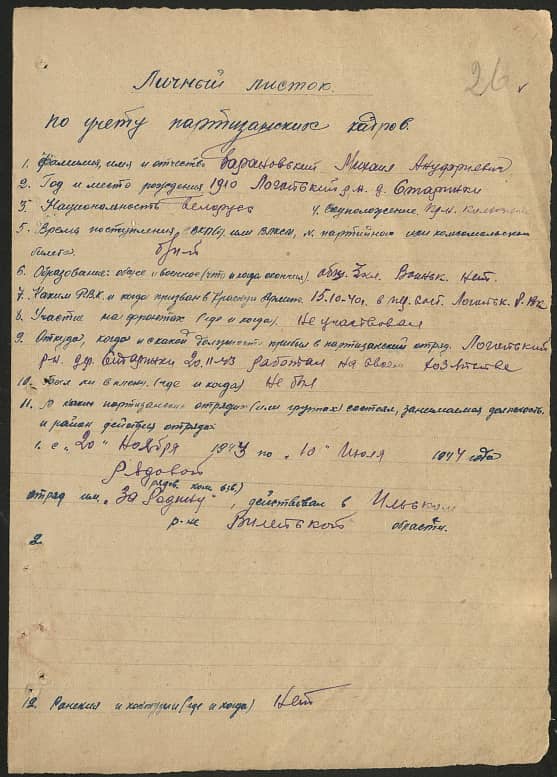 26
Личный листок
по учету партизанских кадров.
1. Фамилия, имя и отчество Барановський Михаил
2. Год и место рождения 1910 Логойтький р.н. д. Старинки
3. Национальность белорус 4. Соцположение
5. Время поступления в ВКП(б) или ВЛКСМ, № партийного или комсомольского
билета. б/п-й
6. Образование: общее и военное (что и когда окончил) общ. 3 кл. Нет.
7. Каким Р.В.К. и когда призван в Красную Армию. 15.10.40г. Логойтьк. Р.
8. Участие на фронтах (где и когда). Не участвовал
9. Откуда, когда и с какой должности прибыл в партизанский отряд. Логойтький
р-н д. Старинки 20.11.43 работал на своем хозяйстве
10. Был ли в плену. (где и когда) Не был
11. В каких партизанских отрядах (или группах) состоял, занимаемая должность
и район действия отряда:
1. с "20" Ноября 1943 по "10" Июля 1944 года
Рядовой
отряд им. "За Родину", действовал в Ильском
р-не Вилейтькой области.
2
12. Ранения и контузии (где и когда) Нет